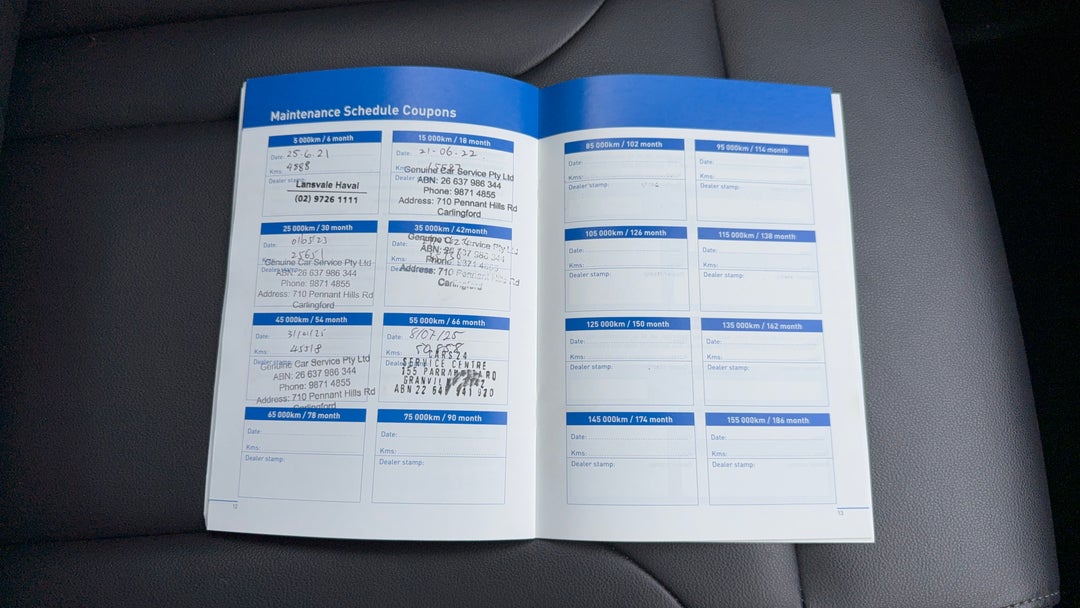 Maintenance Schedule Coupons
5 000km / 6 month
Date: 25-6-21
Kms: 4888
Dealer stamp:
Lansvale Haval
(02) 9726 1111
15 000km / 18 month
Date: 21-06-22
Kms:
Dealer
Genuine Car Service Pty Ltd
ABN: 26 637 986 344
Phone: 9871 4855
Address: 710 Pennant Hills Rd
Carlingford
25 000km / 30 month
Date:
Kms: 25651
Dealer
Genuine Car Service Pty Ltd
ABN: 26 637 986 344
Phone: 9871 4855
Address: 710 Pennant Hills Rd
Carlingford
35 000km / 42month
Date:
Kms:
Dealer
Genuine Car Service Pty Ltd
ABN: 26 637 986 344
Phone: 9871 4855
Address: 710 Pennant Hills Rd
Carlingford
45 000km / 54 month
Date:
Kms: 45518
Dealer stamp:
Genuine Car Service Pty Ltd
ABN: 26 637 986 344
Phone: 9871 4855
Address: 710 Pennant Hills Rd
Carlingford
55 000km / 66 month
Date: 8/07/25
Kms:
CARS24
SERVICE CENTRE
155
ABN 22 641 941 920
65 000km / 78 month
Date:
Kms:
Dealer stamp:
75 000km / 90 month
Date:
Kms:
Dealer stamp:
12
85 000km / 102 month
Date:
Kms:
Dealer stamp:
95 000km / 114 month
Date:
Kms:
Dealer stamp:
105 000km / 126 month
Date:
Kms:
Dealer stamp:
115 000km / 138 month
Date:
Kms:
Dealer stamp:
125 000km / 150 month
Date:
Kms:
Dealer stamp:
135 000km / 162 month
Date:
Kms:
Dealer stamp:
145 000km / 174 month
Date:
Kms:
Dealer stamp:
155 000km / 186 month
Date:
Kms:
Dealer stamp:
13